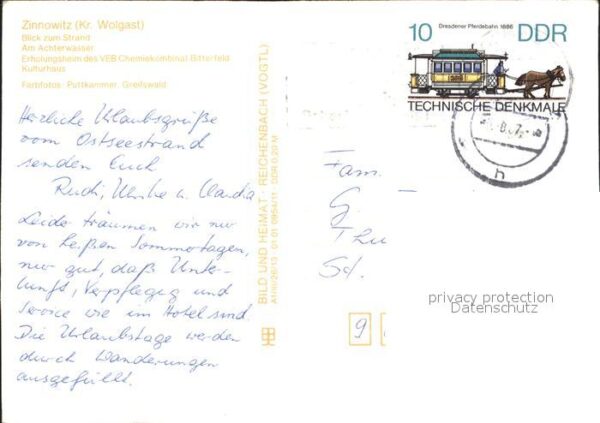 Zinnowitz (Kr. Wolgast)
Blick zum Strand
Am Achterwasser
Erholungsheim des VEB Chemiekombinat Bitterfeld
Kulturhaus
Farbfotos: Puttkammer, Greifswald
Herzliche Urlaubsgrüße
vom Ostseestrand
senden Euch
Rudi, Ulrike u. Claudia
Leider träumen wir nur
von heißen Sommertagen,
nur gut, daß Unter-
kunft, Verpflegung und
Service wie im Hotel sind.
Die Urlaubstage werden
durch Wanderungen
ausgefüllt.
BILD UND HEIMAT · REICHENBACH (VOGTL)
A1/IV/26/13 01 01 0954/11 DDR 0,20 M
Dresdener Pferdebahn 1886
10 DDR
TECHNISCHE DENKMALE
h
Fam.
G.
Thu
Sd.
9
privacy protection
Datenschutz